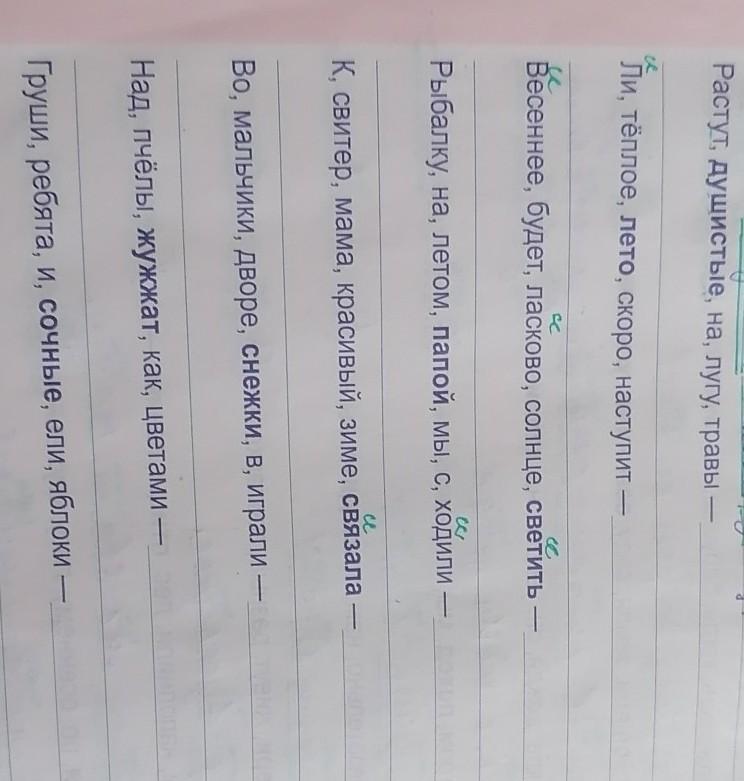 Растут, душистые, на, лугу, травы —
Ли, тёплое, лето, скоро, наступит —
Весеннее, будет, ласково, солнце, светить —
Рыбалку, на, летом, папой, мы, с, ходили —
К, свитер, мама, красивый, зиме, связала —
Во, мальчики, дворе, снежки, в, играли —
Над, пчёлы, жужжат, как, цветами —
Груши, ребята, и, сочные, ели, яблоки —